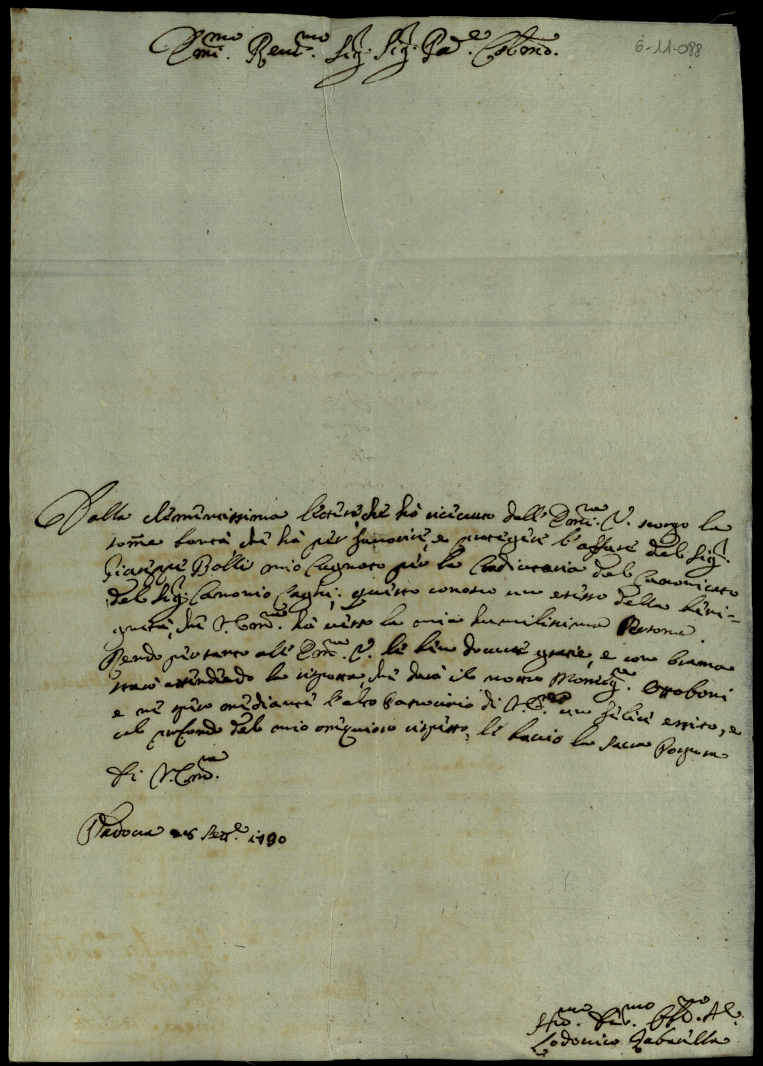 Em.mo Rev.mo Sig. Sig. Pad.e Col.mo
6-11-088
Dalla clementissima lettera che hò ricevuto dall' Em.za V. scorgo la
somma bontà che hà per favorire, e protegere l'affare del Sig.r
Giuseppe Bolli mio Cugnato per la Coadiutoria del Canonicato
del Sig. Canonico questo conosco un eccesso della beni-
gnità, che V. Em.za hà verso la mia humilissima Persona.
Rendo pertanto all' Em.za V. le ben dovute gratie, e con brama
starò attendendo la risposta, che darà il nostro Monsig.re Ottoboni
e ne spero mediante l'alto Patrocinio di V. E. un felice essito, e
col profondo del mio ossequioso rispetto, le bacio la Sacra Porpora
Di V. Em.za
Padova Sett.e 1790
Hu.mo Div.mo Obl.mo
Lodovico